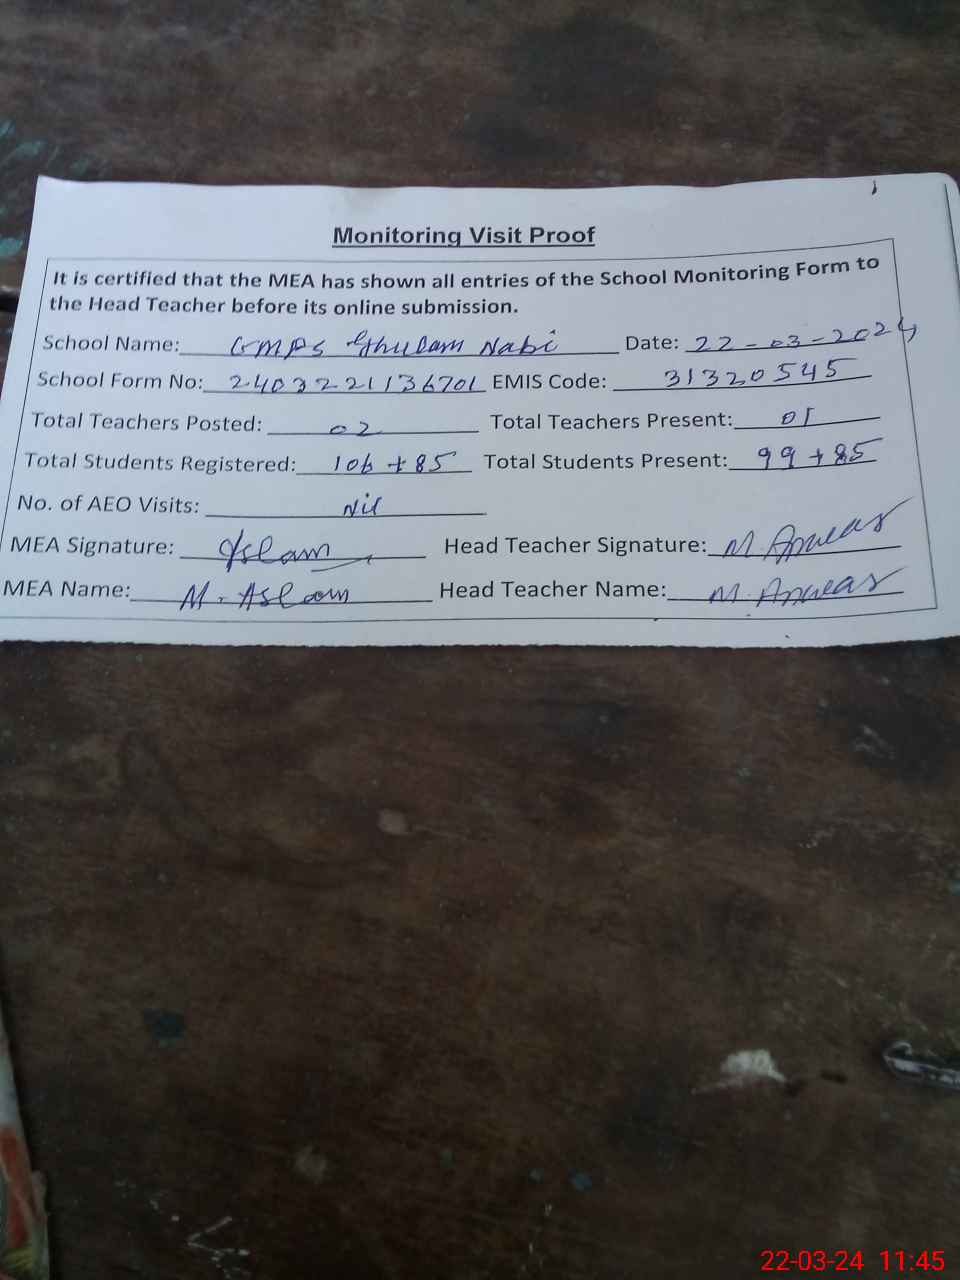 Monitoring Visit Proof
It is certified that the MEA has shown all entries of the School Monitoring Form to
the Head Teacher before its online submission.
School Name: GMPS Ghulam Nabi Date: 22-03-2024
School Form No: 2403221136701 EMIS Code: 31320545
Total Teachers Posted: 02 Total Teachers Present: 01
Total Students Registered: 106+85 Total Students Present: 99+85
No. of AEO Visits: Nil
MEA Signature: Aslam Head Teacher Signature: M.
MEA Name: M. Aslam Head Teacher Name: M.
22-03-24 11:45